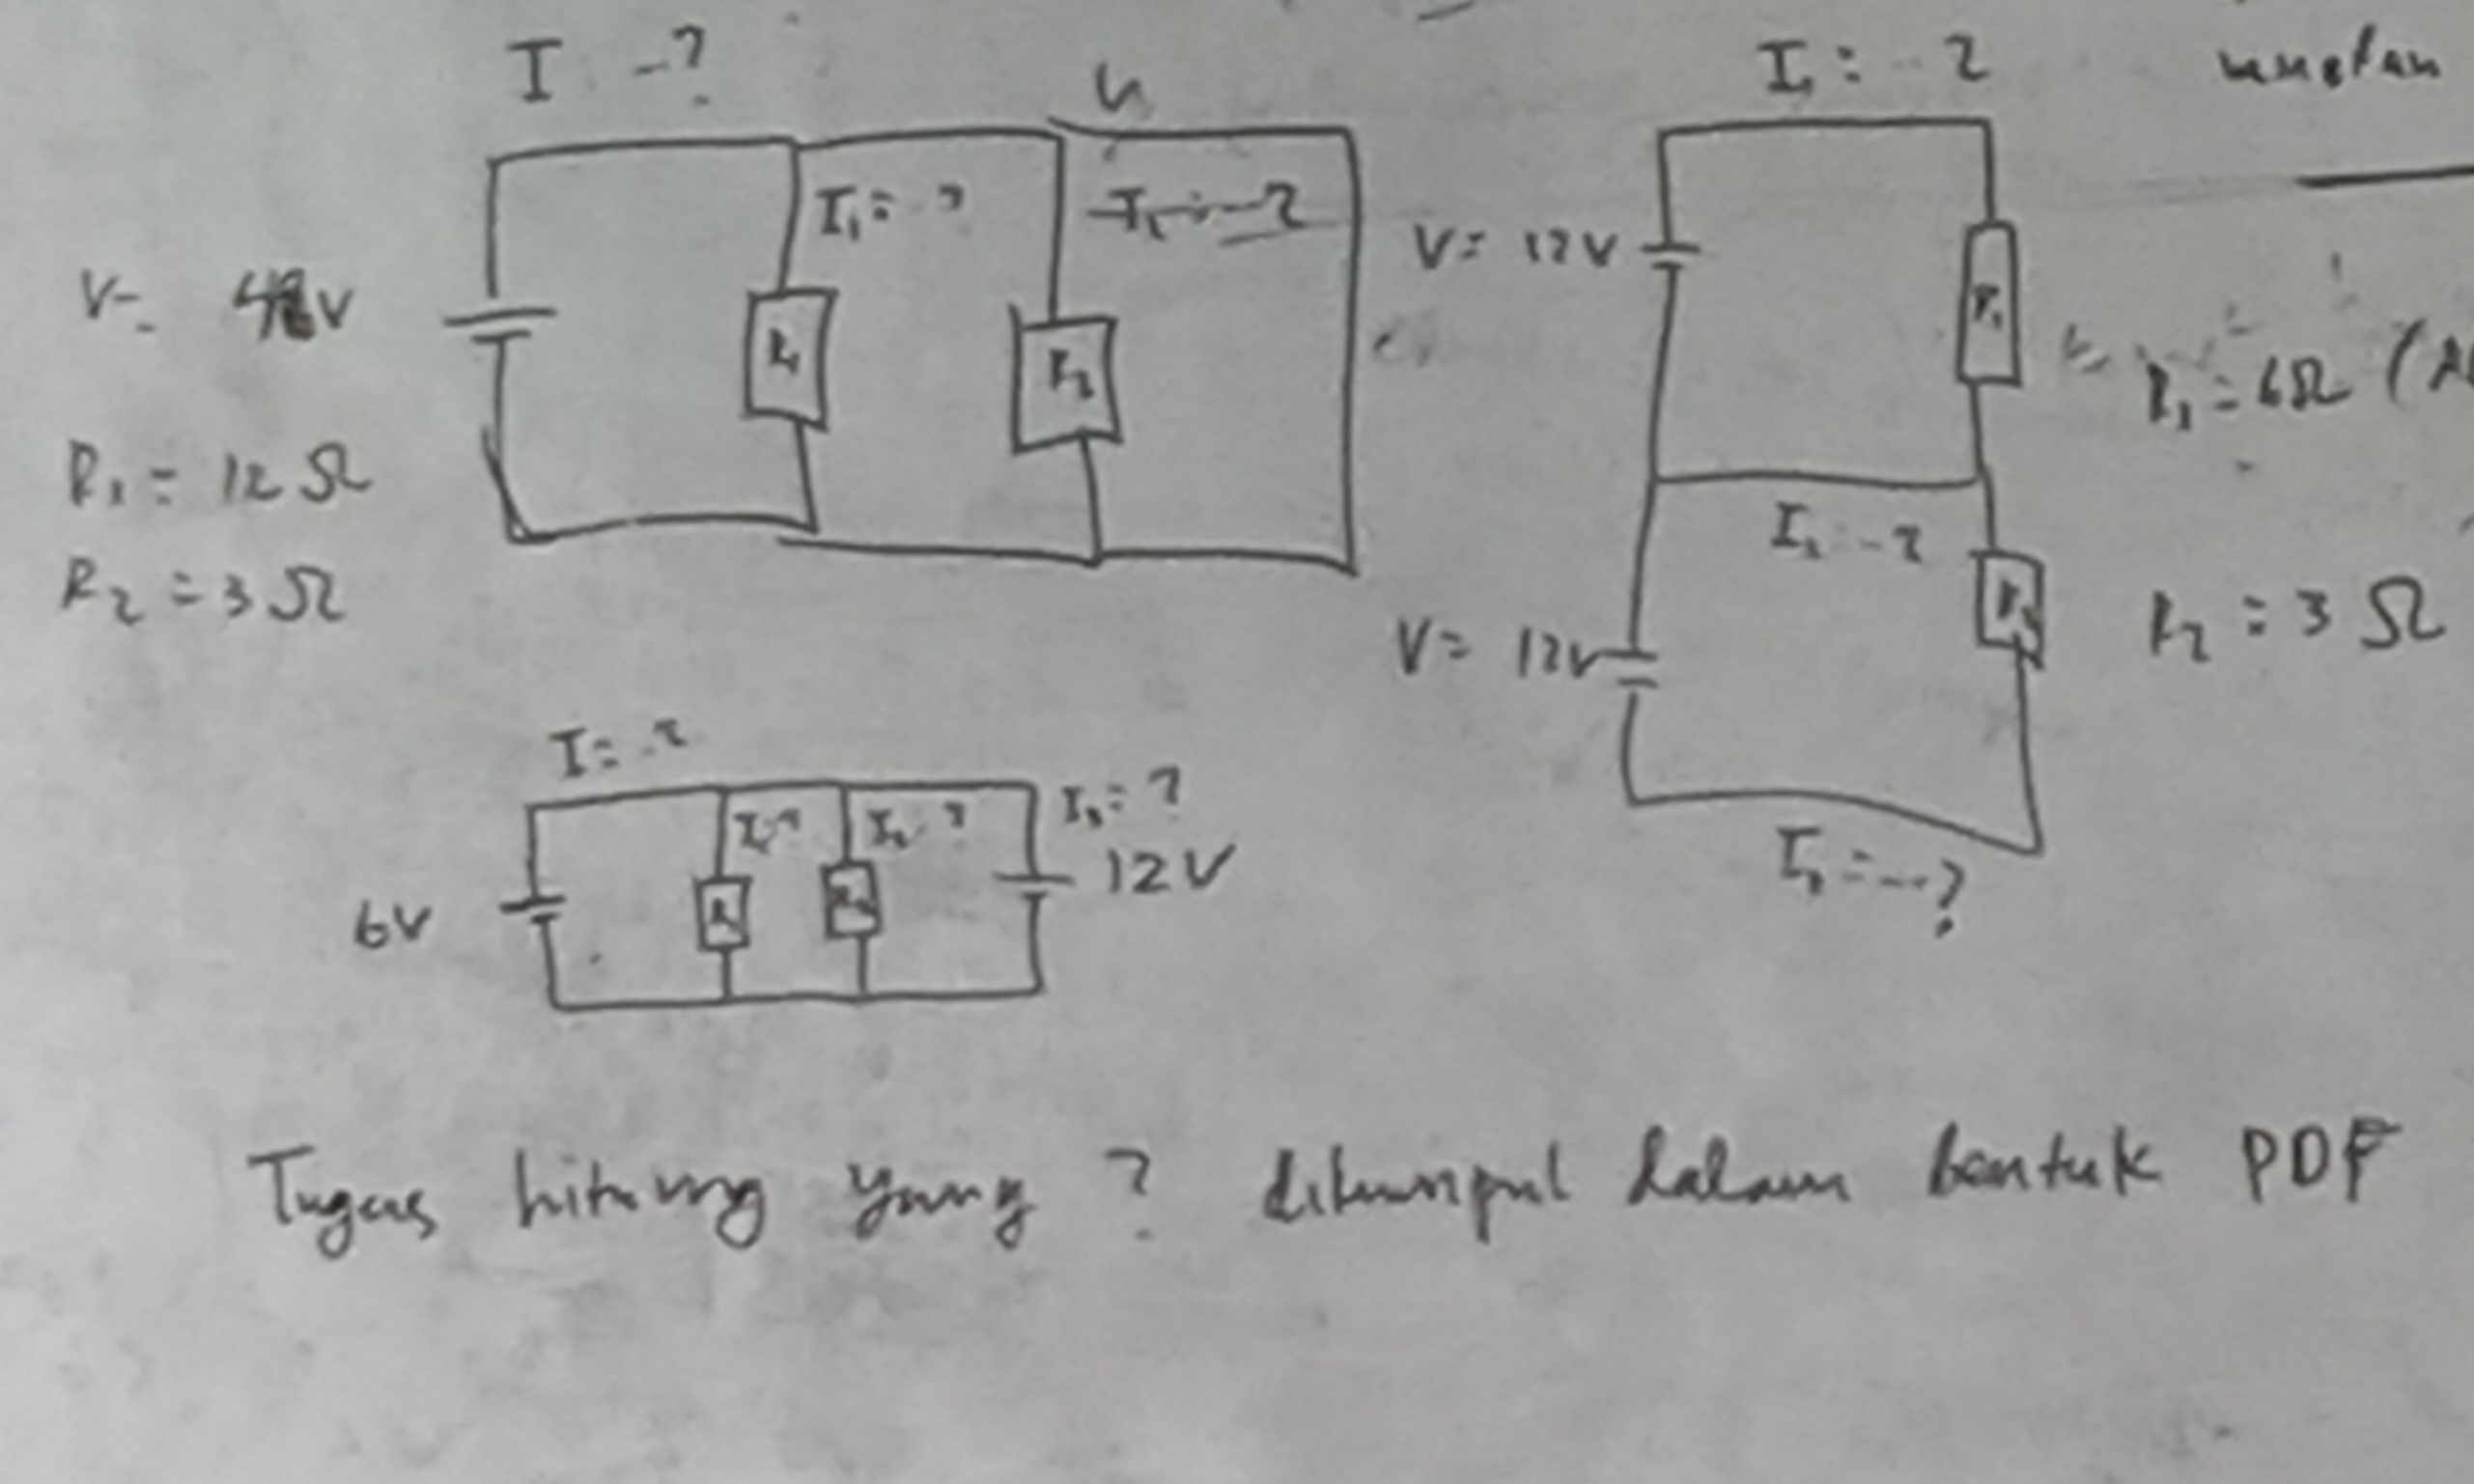 I = ...?
I₁ = ?
V = 48V
R₁ = 12 Ω
R₂ = 3 Ω
I₁ = ...?
V = 12V
R₁ = 6Ω
I₂ = ...?
V = 12V
R₂ = 3 Ω
I₃ = ...?
I = ...?
I₁ ?
I₂ ?
I₃ = ?
6V
12V
Tugas hitung yang ? dikumpul dalam bentuk PDF